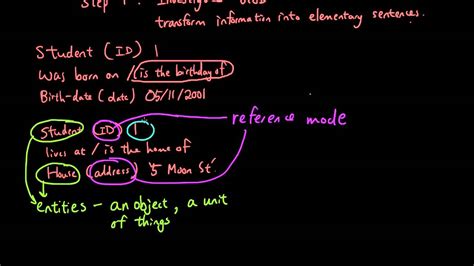 Step 1: Investigate UoD
transform information into elementary sentences.
Student (ID) 1
Was born on / is the birthday of
Birth-date (date) 05/11/2001
Student ID 1
reference mode
lives at / is the home of
House (address) '5 Moon St'
entities - an object, a unit
of things